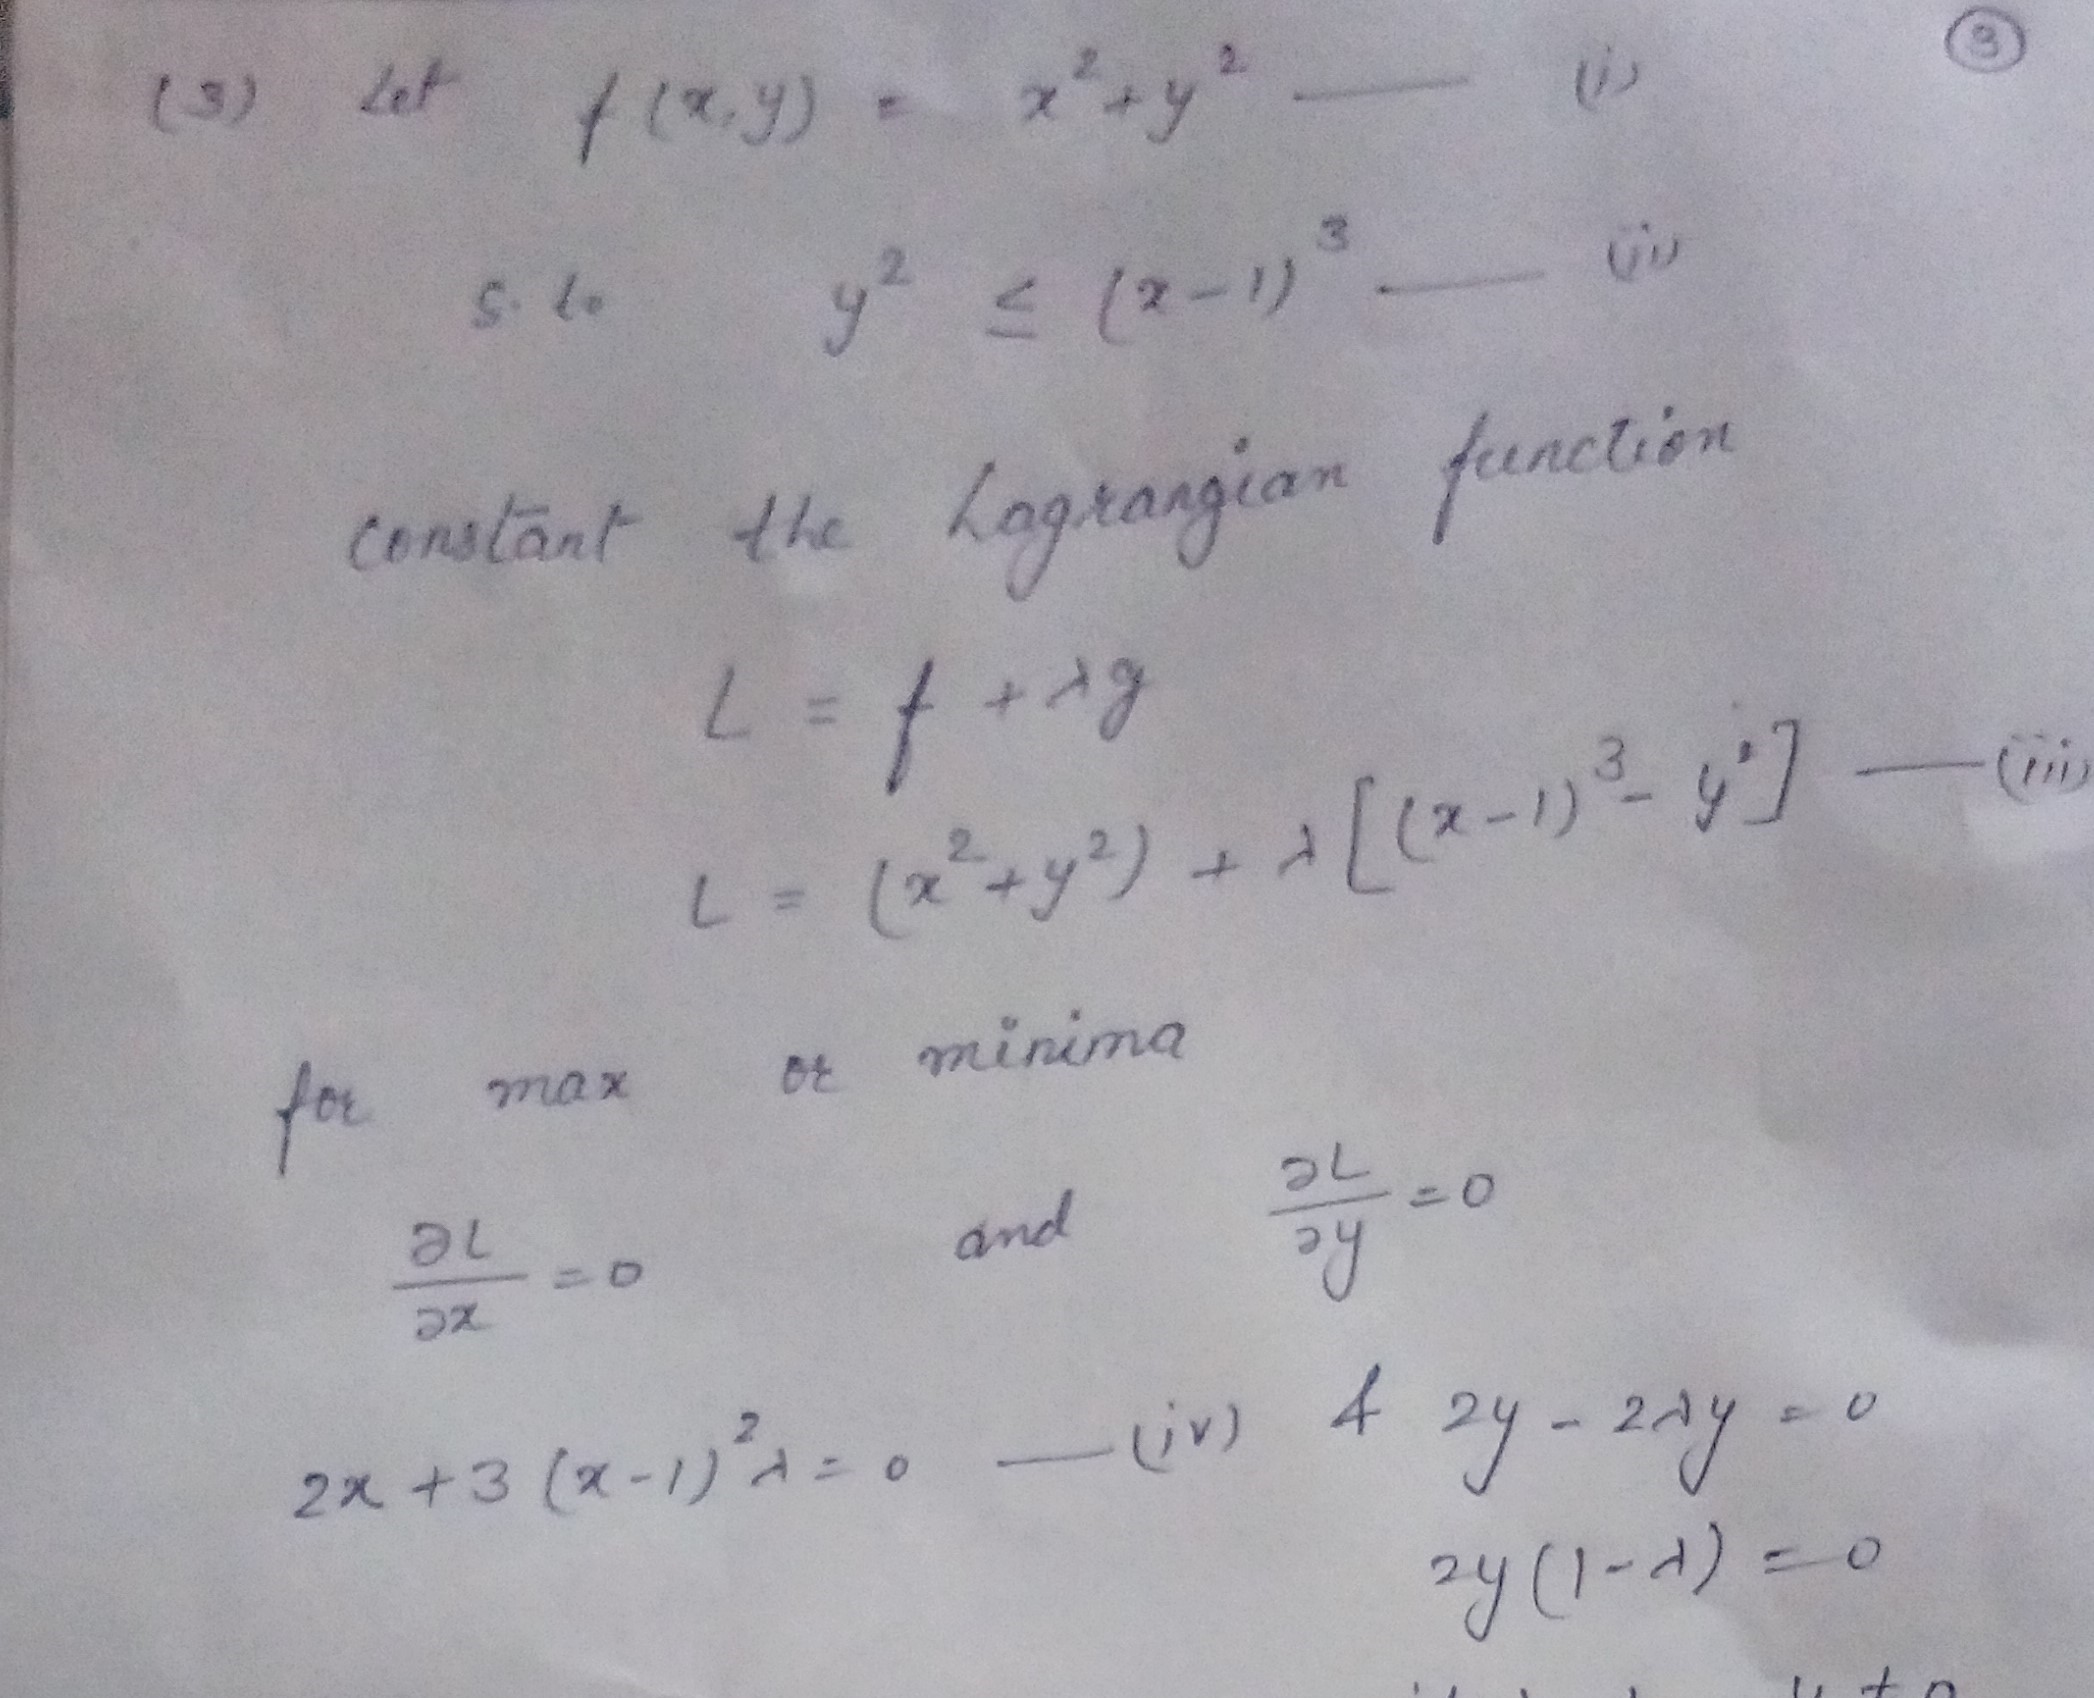 ③
(3) Let f(x,y) = x²+y² —— (i)
S. to y² ≤ (x-1)³ —— (ii)
constant the Lagrangian function
L = f + λg
L = (x²+y²) + λ[(x-1)³- y²] —— (iii)
for max or minima
∂L/∂x = 0 and ∂L/∂y = 0
2x + 3(x-1)²λ = 0 —— (iv) & 2y - 2λy = 0
2y(1-λ) = 0